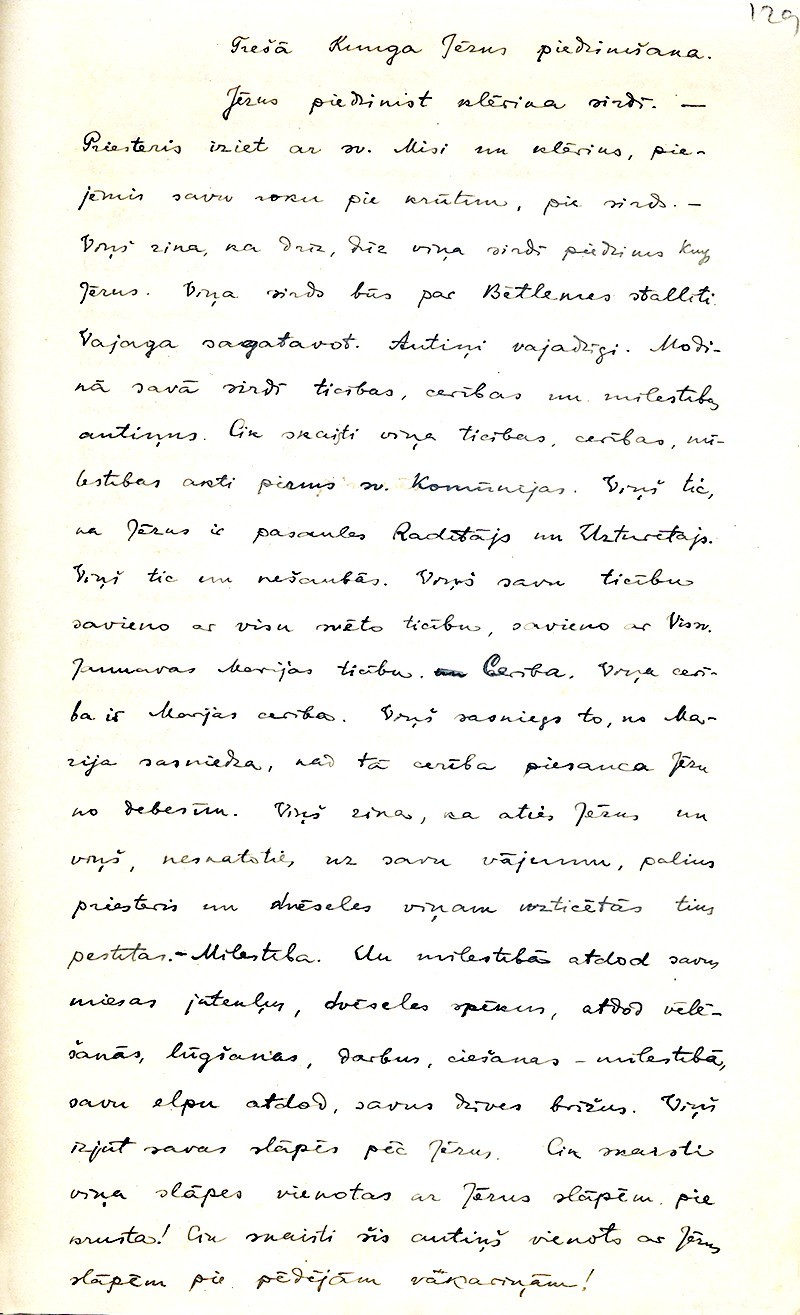 129
Trešā Kunga Jēzus piedzimšana.
Jēzus piedzimst klērika sirdī. —
Priesteris iziet ar sv. Misi un klēriks, pie-
jēmis savu roku pie krūtīm, pie sirds. —
Viņš zina, ka drīz, drīz viņa sirdī piedzims Kungs
Jēzus. Viņa sirds būs par Betlemes stallīti.
Vajaga sagatavot. Autiņi vajadzīgi. Modi-
nā savā sirdī ticības, cerības un mīlestības
autiņus. Cik skaisti viņa ticības, cerības, mī-
lestības akti pirms sv. Komūnijas. Viņš tic,
ka Jēzus ir pasaules Radītājs un Uzturētājs.
Viņš tic un nešaubās. Viņš savu ticību
savieno ar visu svēto ticību, savieno ar Vissv.
Jaunavas Marijas ticību. Cerība. Viņa cerī-
ba ir Marijas cerība. Viņš sasniegs to, ko Ma-
rija sasniedza, kad tā cerība piesauca Jēzu
no debesīm. Viņš zina, ka aties Jēzus un
viņš, neskatoties uz savu vājumu, paliks
priesteris un dvēseles viņam uzticētās tiks
pestītas. – Mīlestība. Un mīlestībā atdod savus
miesas jutekļus, dvēseles spēkus, atdod vēlē-
šanās, lūgšanas, darbus, ciešanas – mīlestībā,
savu elpu atdod, savus dzīves brīžus. Viņš
izjūt savas slāpēs pēc Jēzus. Cik skaisti
viņa slāpes vienotas ar Jēzus slāpēm pie
krusta! Cik skaisti šis autiņš vienots ar Jēzus
slāpēm pie pēdējām vakariņām!